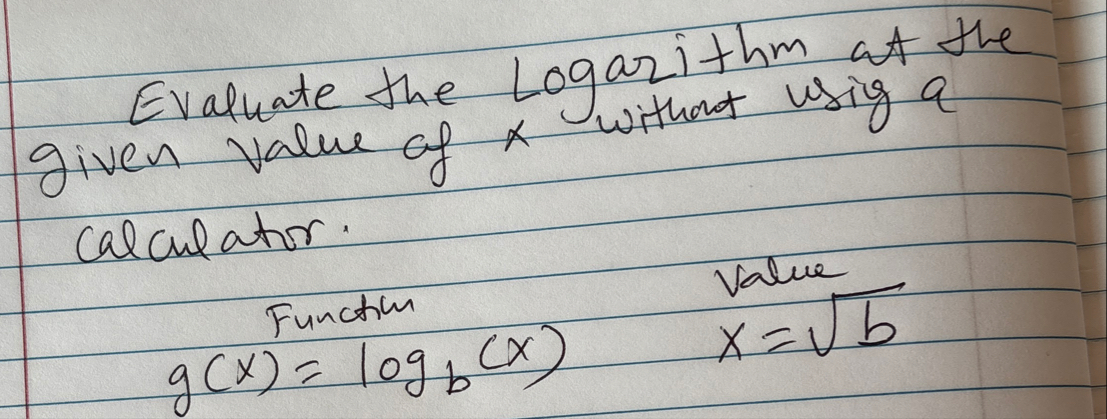 Evaluate the Logarithm at the
given value of x without usig a
calculator.
Function Value
g(x) = log_b (x) x = √b